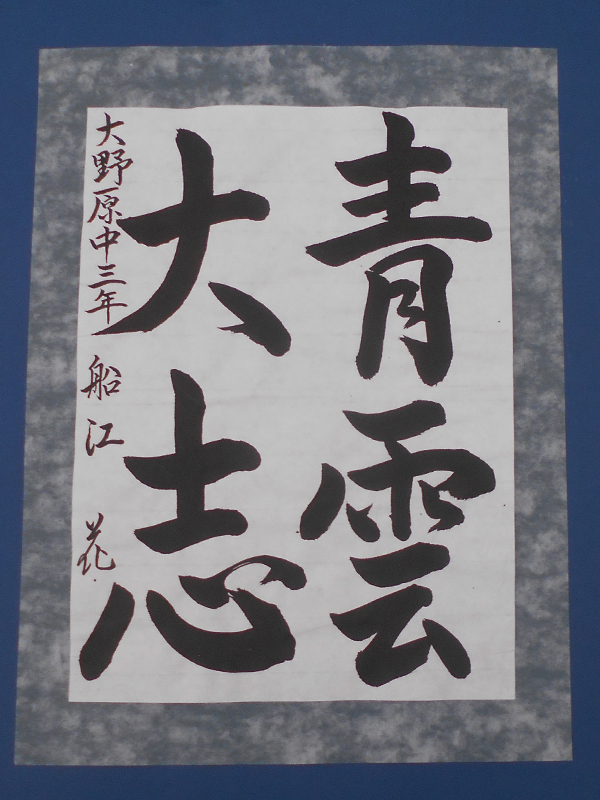 青雲
大志
大野原中三年 船江 花